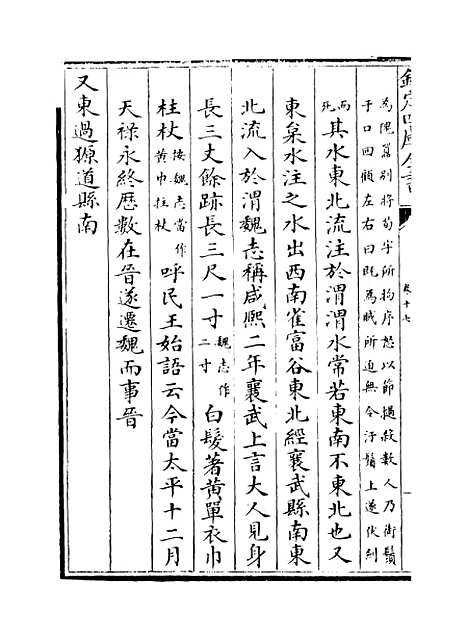 欽定四庫全書
卷十七
為隗囂別將茍宇所拘序怒以節撾殺數人乃銜鬚
于口回顧左右曰既為賊所迫無令汙鬚上遂伏劍
而死
其水東北流注於渭渭水常若東南不東北也又
東枲水注之水出西南雀富谷東北經襄武縣南東
北流入於渭魏志稱咸熙二年襄武上言大人見身
長三丈餘跡長三尺一寸魏志作二寸白髮著黃單衣巾
柱杖按魏志當作黃巾拄杖呼民王始語云今當太平十二月
天祿永終厯數在晉遂遷魏而事晉
又東過獂道縣南